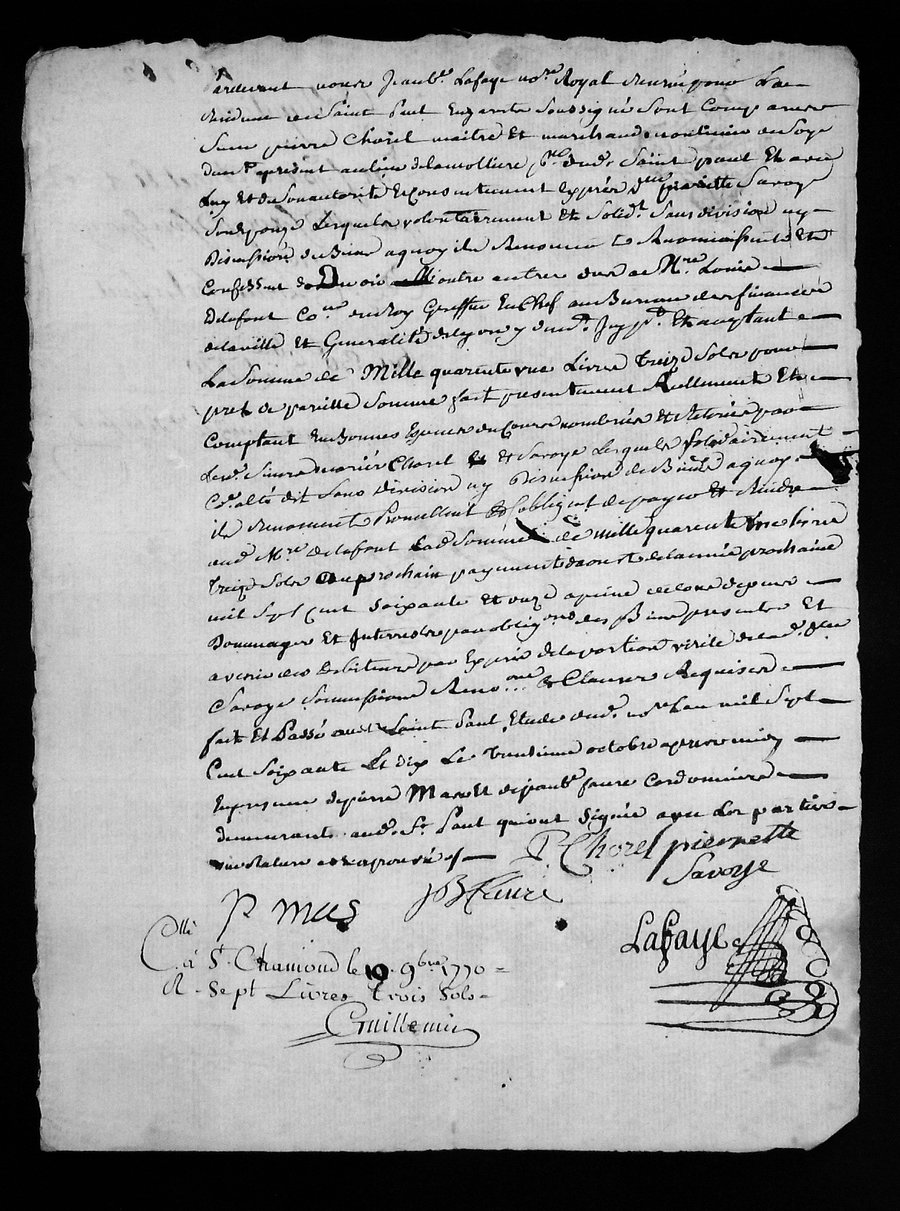 Pardevant nous Jeanb.te Lafaye no.re Royal reservé pour la
residence de Saint Paul En Jarrete Soussigné Sont Comparus
Sieur pierre Chorel maitre et marchand moulinier en Soye
dem.t a present au lieu de lamolliere p.sse dud. Saint paul Et avec
Luy Et de Son autorité Et Consentement exprés d.lle pierrette Savoye
Son Epouze Lesquels volontairement Et Solid.t Sans division ny
Discussion de Biens a quoy ils Renoncent Reconnoissent Et
Confessent devoir a M.re Louis
Delafont Co.er du Roy Greffier En Chef au Bureau des finances
de la ville Et Generalité de Lyon y dem.t Icy p.t Et acceptant
La Somme de Mille quarente une Livre Treize Sols pour
pret de pareille Somme fait presentement Reellement Et
Comptant En Bonnes Especes du Cours nombrées Et Retirées par
Lesd. Sieurs mariés Chorel et Savoye Lesquels Solidairement
Co.e a Eté dit Sans division ny Discussion de Biens a quoy
ils Renoncent Promettent Et S'obligent de payer Et Rendre
aud. M.re Delafont lad. Somme de mille quarente une Livre
Treize Sols au prochain payement daoust de lannée prochaine
mil Sept Cent Soixante Et onze a peine de tous depens
Dommages Et Interrets par obligons des Biens presents Et
avenir des Debiteurs par Exprés de la portion virile de lad. d.lle
Savoye Soumissions Renon.ons & Clauses Requises
fait Et Passé aud. Saint Paul Etude dud. no.re Lan mil Sept
Cent Soixante Et dix Le Trentieme octobre apres midy
En presence de pierre Mas Et de jeanb.te faure Cordonniers
demeurants aud. S.t Paul qui ont Signés avec Les parties
P Chorel pierrette
Savoye
P mas
JB faure
Lafaye
Collé
à S.t Chamond le 10 9bre 1770
R. Sept Livres trois Sols
Guillemin